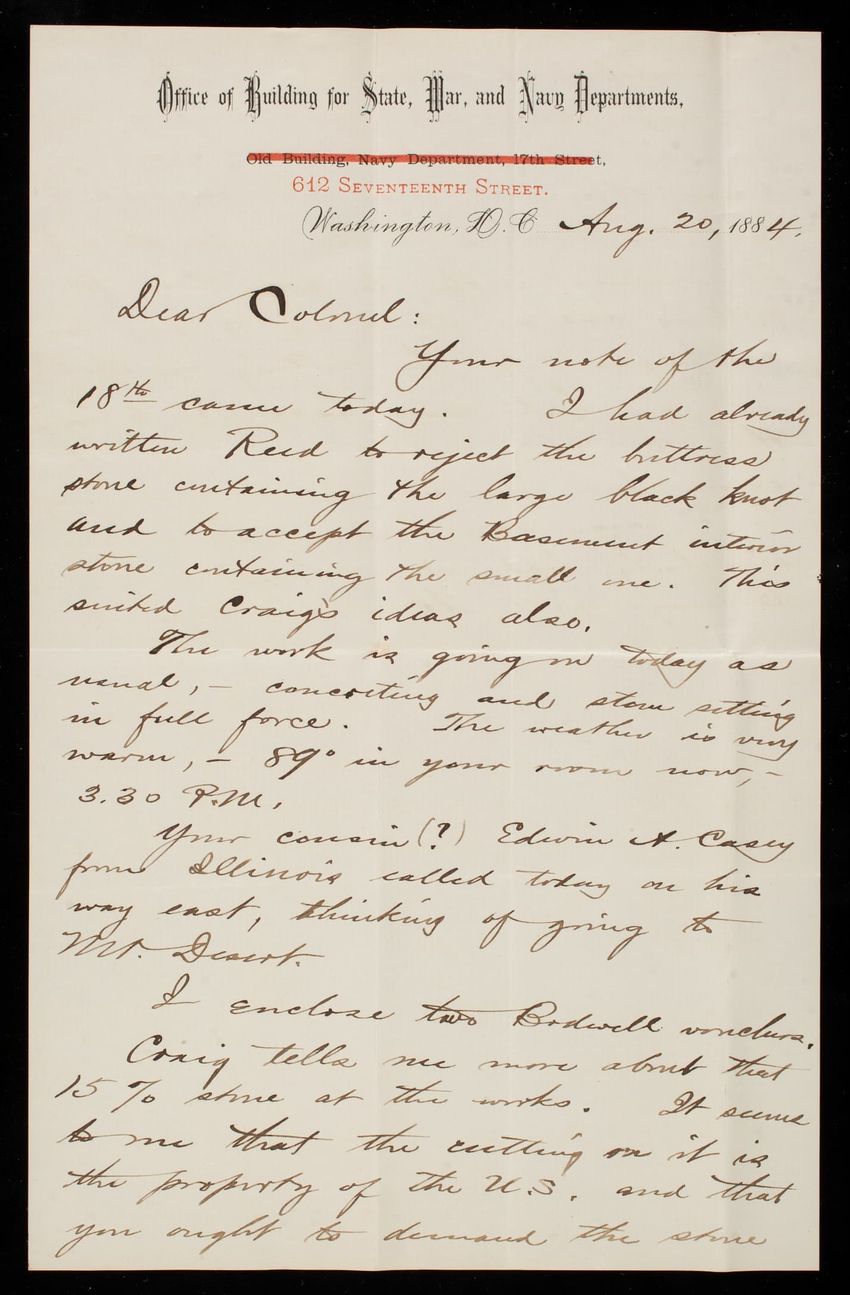 Office of Building for State, War, and Navy Departments,
Old Building, Navy Department, 17th Street,
612 SEVENTEENTH STREET.
Washington, D.C. Aug. 20, 1884.
Dear Colonel:
Your note of the
18th came today. I had already
written Reed to reject the buttress
stone containing the large black knot
and to accept the Basement interior
stone containing the small one. This
suited Craig's ideas also.
The work is going on today as
usual, – concreting and stone setting
in full force. The weather is very
warm, – 89° in your room now, –
3.30 P.M.
Your cousin (?) Edwin A. Casey
from Illinois called today on his
way east, thinking of going to
Mt. Desert.
I enclose two Bodwell vouchers.
Craig tells me more about that
15 % stone at the works. It seems
to me that the cutting on it is
the property of the U.S. and that
you ought to demand the stone